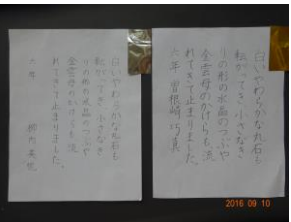 白いやわらかな丸石も
転がってき、小さなき
りの形の水晶のつぶや
金雲母のかけらも、流
れてきて止まりました。
六年 曽根崎 巧真
白いやわらかな丸石も
転がってき、小さなき
りの形の水晶のつぶや
金雲母のかけらも、流
れてきて止まりました。
六年
2016 09 10